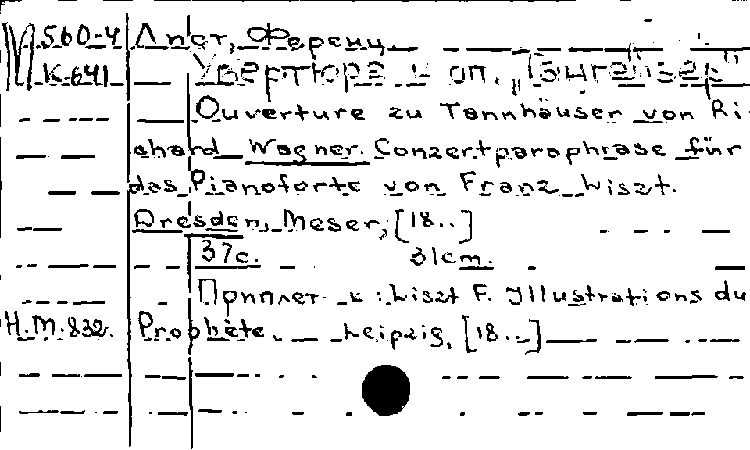 М 560-4 Лист, Ференц
К-641 Увертюра к оп. „Тангейзер"
Ouverture zu Tannhäuser von Ri-
chard Wagner. Conzertparaphrase für
das Pianoforte von Franz Liszt.
Dresden, Meser, [18..]
37с. 31cm.
Приплет к: Liszt F. Illustrations du
Н.М.832. Prophète. Leipzig, [18..]